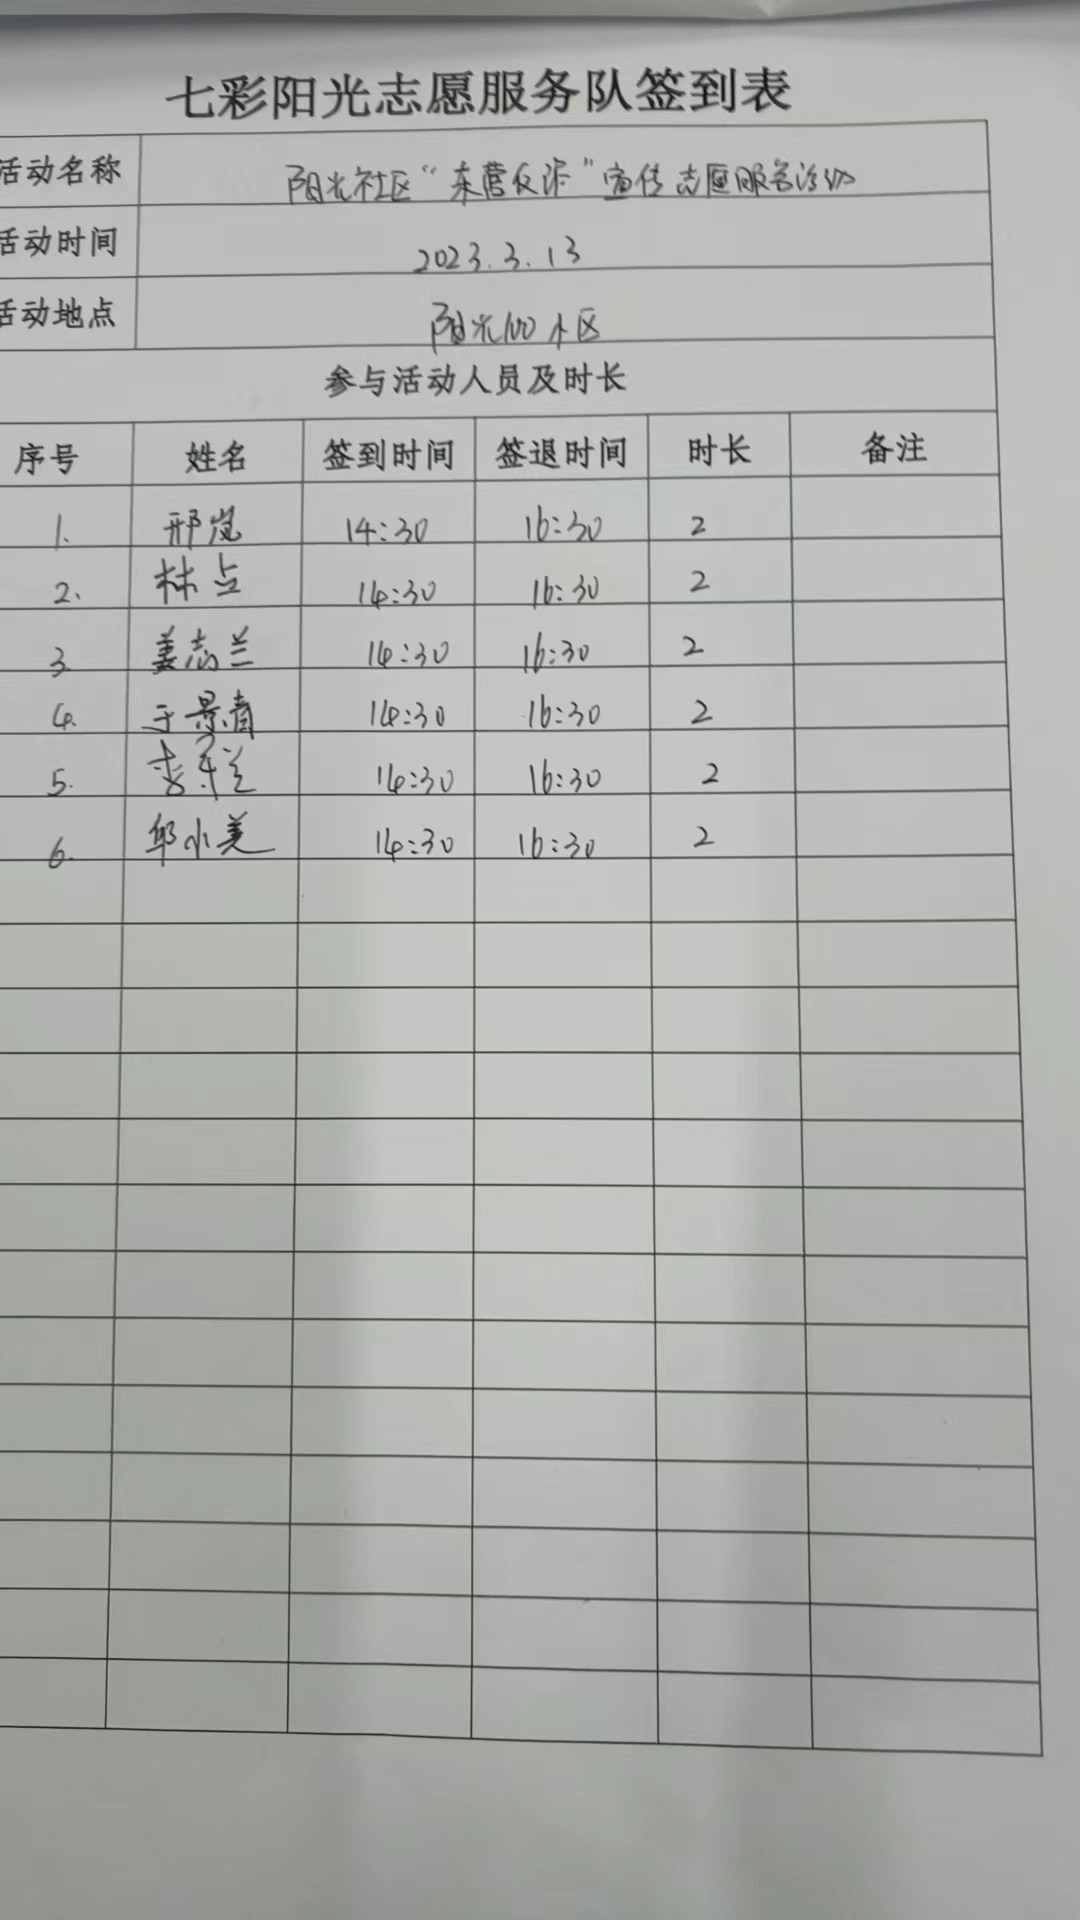 七彩阳光志愿服务队签到表
活动名称 阳光社区“东营反诈”宣传志愿服务活动
活动时间 2023.3.13
活动地点 阳光100小区
参与活动人员及时长
序号 姓名 签到时间 签退时间 时长 备注
1. 邢岚 14:30 16:30 2
2. 林 14:30 16:30 2
3. 姜志兰 14:30 16:30 2
4. 于景青 14:30 16:30 2
5. 李 14:30 16:30 2
6. 邱小美 14:30 16:30 2